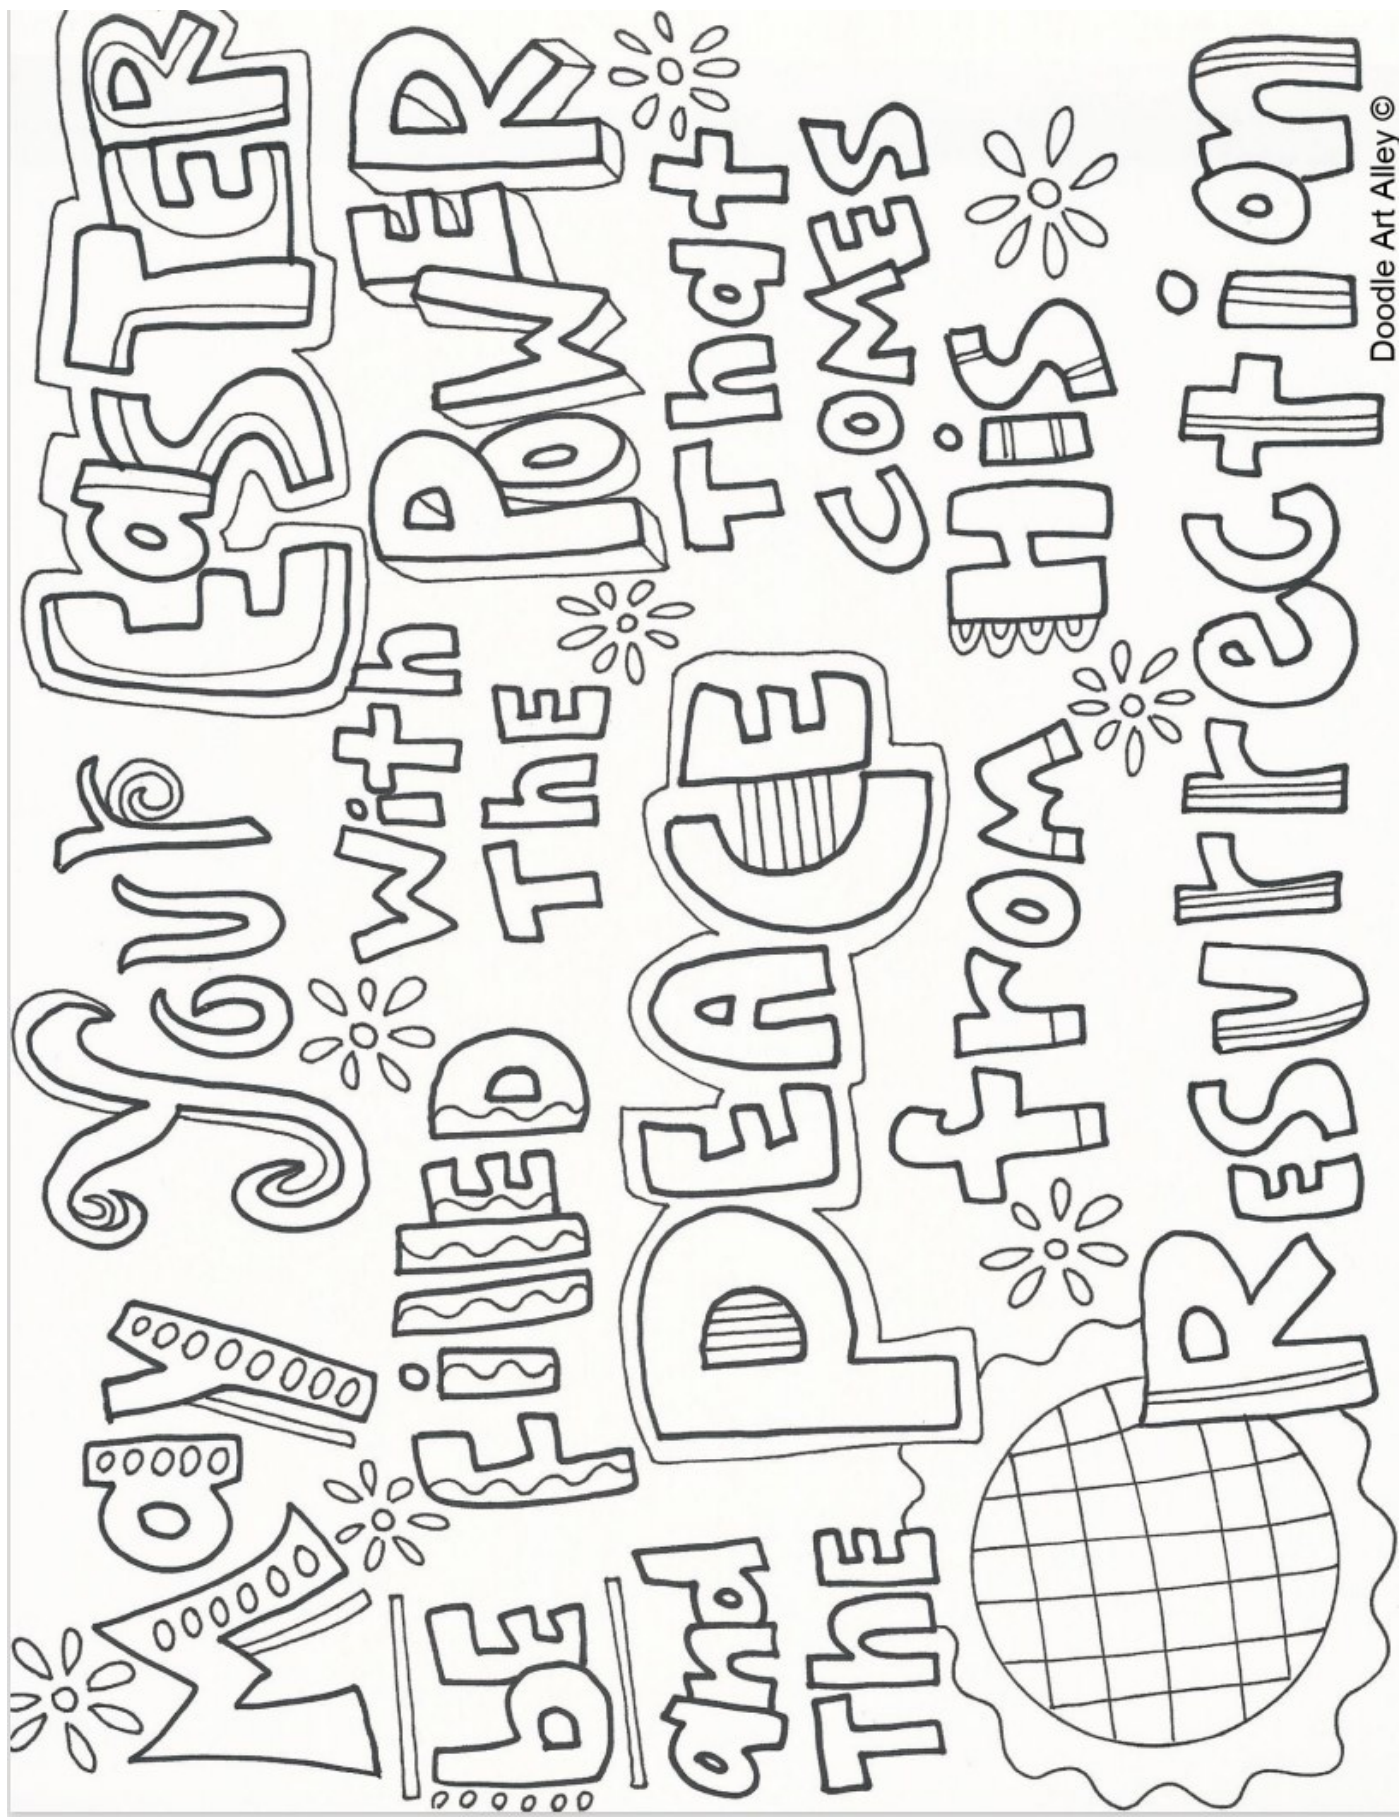 May Your EaSTER
bE FillED with ThE POWER
and ThE PEACE That COMES
from HiS
RESurrection
Doodle Art Alley ©